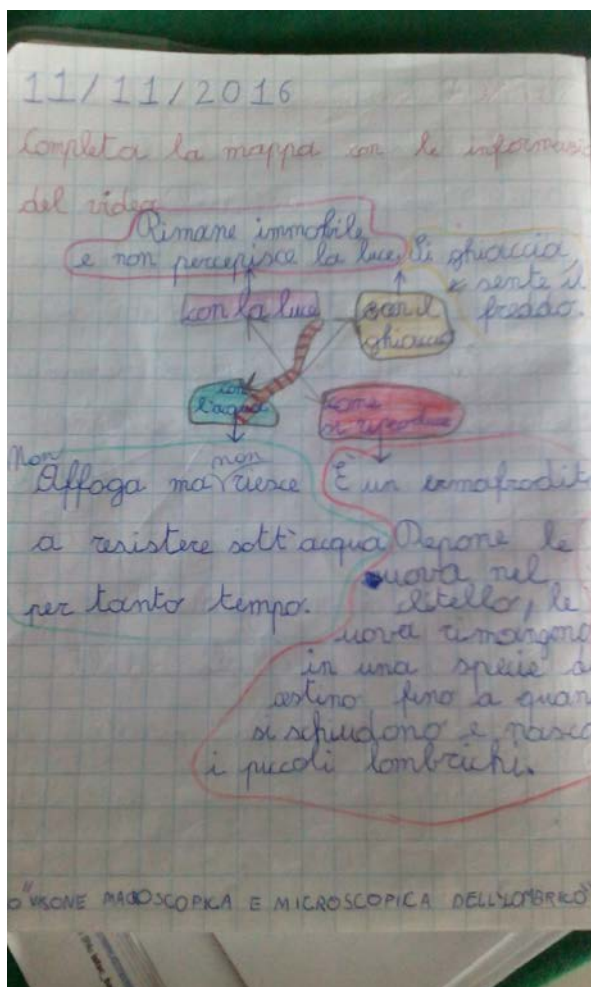 11/11/2016
Completa la mappa con le informazio
del video
Rimane immobile
e non percepisce la luce.
Si ghiaccia,
sente il
freddo.
con la luce
con il
ghiaccio
con
l'acqua
come
si riproduce
Non
Affoga ma non riesce
a resistere sott'acqua
per tanto tempo.
È un ermafrodit
Depone le
uova nel
clitello, le
uova rimangono
in una specie d
cestino fino a quan
si schiudono e nasco
i piccoli lombrichi.
"VISONE MACOSCOPICA E MICROSCOPICA DELL'LOMBRICO"